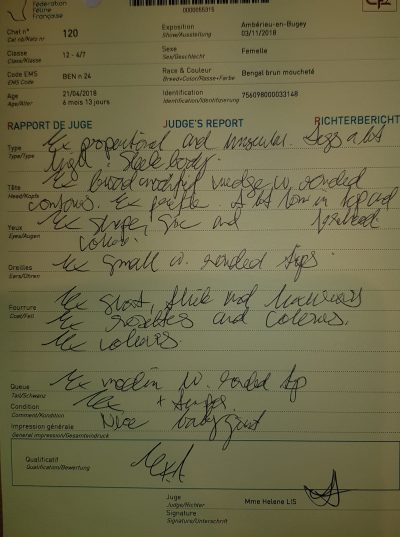 Fédération
Féline
Française
0000055315
Chat n° 120
Cat nb/Katz nr
Exposition Ambérieu-en-Bugey
Show/Ausstellung 03/11/2018
Classe 12 - 4/7
Class/Klasse
Sexe Femelle
Sex/Geschlecht
Code EMS BEN n 24
EMS Code
Race & Couleur Bengal brun moucheté
Breed+Color/Rasse+Farbe
Age 21/04/2018
Age/Alter 6 mois 13 jours
Identification 756098000033148
Identification/Identifizierung
RAPPORT DE JUGE JUDGE'S REPORT RICHTERBERICHT
Type Ex proportional and muscular. Legs a bit
Type/Type
high. body.
Tête Ex broad modified wedge w. rounded
Head/Kopfs
contours. Ex profile. A bit in top and
forehead
Yeux Ex shape, size and
Eyes/Augen
colour.
Oreilles Ex small w. rounded tips.
Ears/Ohren
Fourrure Ex short, thick and
Coat/Fell
Ex rosettes and colours.
Ex colours.
Queue Ex medium w. rounded tip
Tail/Schwanz
Condition Ex +
Comment/Kondition
Impression générale Nice baby
General impression/Gesamteindruck
Qualificatif Ex1
Qualification/Bewertung
Juge Mme Helene LIS
Judge/Richter
Signature
Signature/Unterschrift